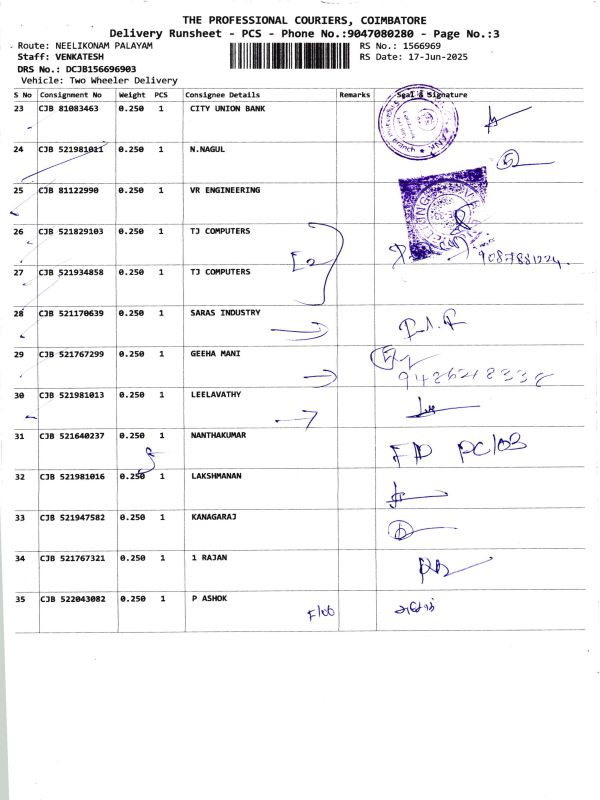 THE PROFESSIONAL COURIERS, COIMBATORE
Delivery Runsheet - PCS - Phone No.:9047080280 - Page No.:3
Route: NEELIKONAM PALAYAM
RS No.: 1566969
Staff: VENKATESH
RS Date: 17-Jun-2025
DRS No.: DCJB156696903
Vehicle: Two Wheeler Delivery
S No Consignment No Weight PCS Consignee Details Remarks Seal & Signature
23 CJB 81083463 0.250 1 CITY UNION BANK
24 CJB 521981011 0.250 1 N.NAGUL
25 CJB 81122990 0.250 1 VR ENGINEERING
26 CJB 521829103 0.250 1 TJ COMPUTERS
9087881224
27 CJB 521934858 0.250 1 TJ COMPUTERS
28 CJB 521170639 0.250 1 SARAS INDUSTRY
29 CJB 521767299 0.250 1 GEEHA MANI
30 CJB 521981013 0.250 1 LEELAVATHY
31 CJB 521640237 0.250 1 NANTHAKUMAR
F/D
32 CJB 521981016 0.250 1 LAKSHMANAN
33 CJB 521947582 0.250 1 KANAGARAJ
34 CJB 521767321 0.250 1 1 RAJAN
35 CJB 522043082 0.250 1 P ASHOK